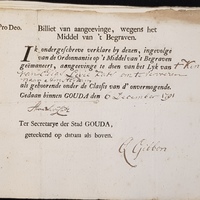 Pro Deo.
Billiet van aangeevinge, wegens het
Middel van 't Begraven.
Ik ondergeschreve verklare by dezen, ingevolge
van de Ordonnantie op 't Middel van 't Begraven
geëmaneert, aangeevinge te doen van het Lyk van 't Kin
als gehoorende onder de Classis van d' onvermogende.
Gedaan binnen GOUDA den 6 December 1791
Ter Secretarye der Stad GOUDA,
geteekend op datum als boven.